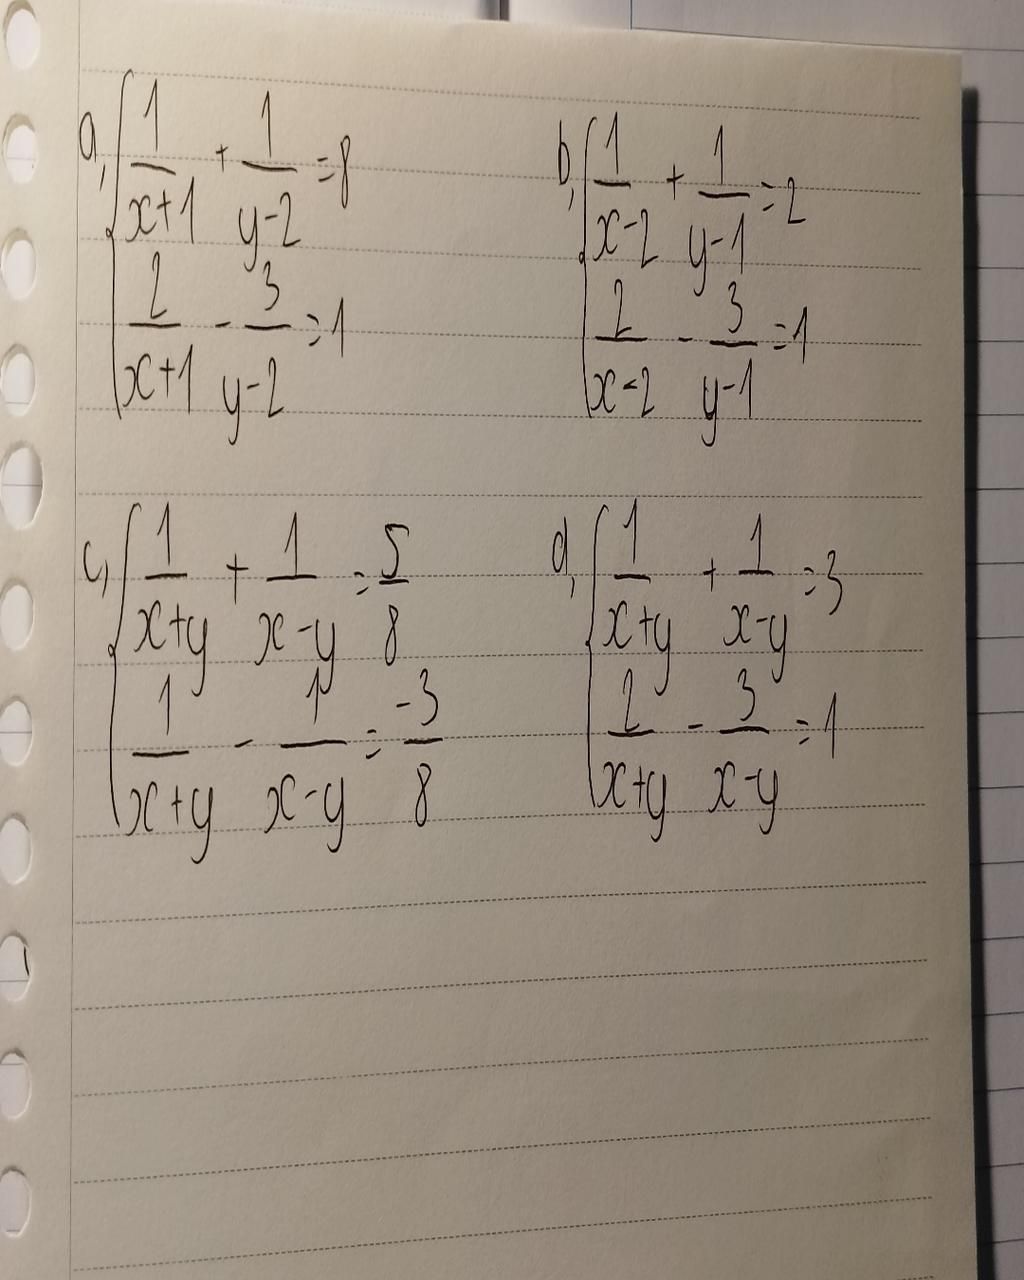 a, { 1/(x+1) + 1/(y-2) = 8
2/(x+1) - 3/(y-2) = 1
b, { 1/(x-2) + 1/(y-1) = 2
2/(x-2) - 3/(y-1) = 1
c, { 1/(x+y) + 1/(x-y) = 5/8
1/(x+y) - 1/(x-y) = -3/8
d, { 1/(x+y) + 1/(x-y) = 3
2/(x+y) - 3/(x-y) = 1